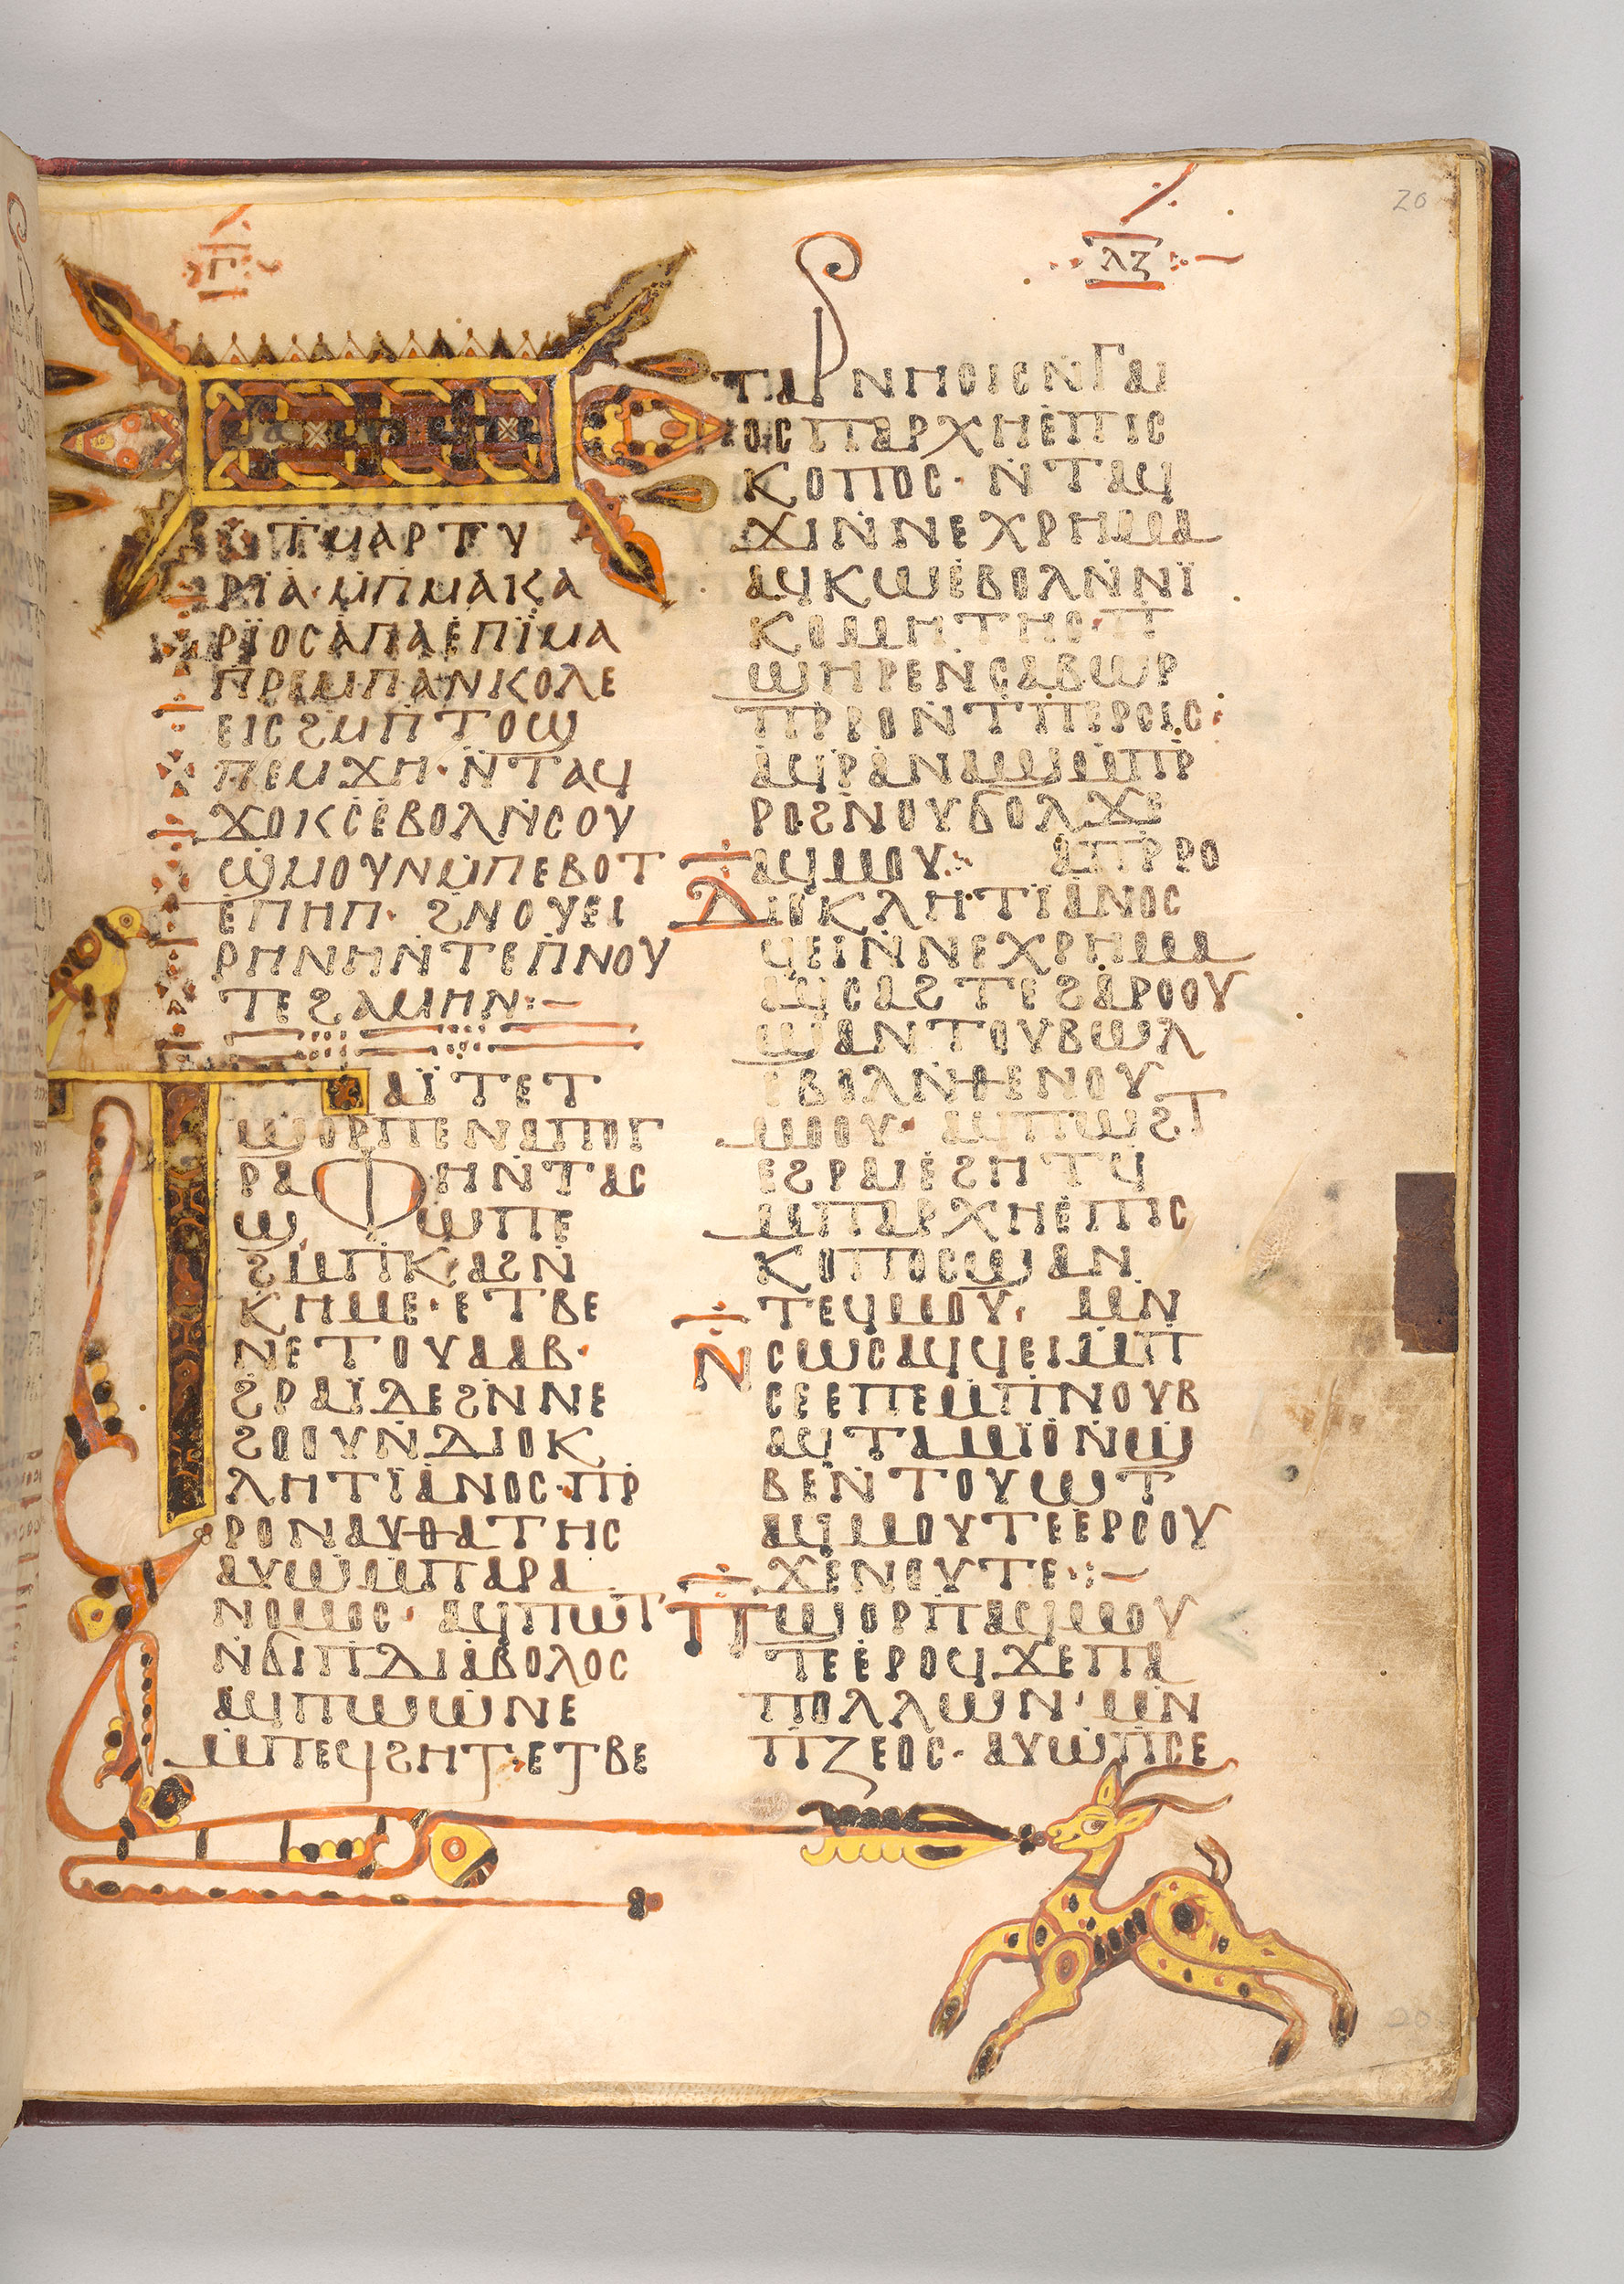 20
ⲗⲍ
ⲧⲙⲁⲣⲧⲩ
ⲣⲓ̈ⲁ· ⲙ̇ⲡ̇ⲙⲁⲕⲁ
ⲣⲓ̈ⲟⲥ ⲁ̇ⲡⲁ ⲉ̇ⲡⲓ̈ⲙⲁ
ⲡⲣⲙⲡⲁⲛⲕⲟⲗⲉ
ⲉⲓⲥ ϩⲙ̇ⲡ̇ⲧⲟϣ
ⲡⲉⲙϫⲏ· ⲛ̇ⲧⲁϥ
ϫⲟⲕⲥ ⲉ̇ⲃⲟⲗ ⲛ̇ⲥⲟⲩ
ϣⲙⲟⲩⲛ ⲙ̇ⲡⲉⲃⲟⲧ
ⲉ̇ⲡⲏⲡ· ϩ̇ⲛⲟⲩⲉⲓ
ⲣⲏⲛⲏ ⲛ̇ⲧⲉ ⲡ̇ⲛⲟⲩ
ⲧⲉ ϩⲁⲙⲏⲛ:–
ⲧⲁⲓ̈ ⲧⲉ ⲧ
ϣⲟⲣⲡⲉ ⲛⲁⲡⲟⲅ
ⲣⲁⲫⲏ ⲛ̇ⲧⲁⲥ
ϣⲱⲡⲉ
ϩⲙ̇ⲡ̇ⲕⲁϩ ⲛ̇
ⲕⲏⲙⲉ· ⲉⲧⲃⲉ
ⲛⲉⲧⲟⲩⲁⲁⲃ·
ϩⲣⲁⲓ̈ ⲇⲉ ϩ̇ⲛⲛⲉ
ϩⲟⲟⲩ ⲛ̇ⲇⲓⲟⲕ
ⲗⲏⲧⲓ̈ⲁⲛⲟⲥ· ⲡⲣ̇
ⲣⲟ ⲛⲁⲩⲑⲁⲧⲏⲥ
ⲁⲩⲱ ⲙ̇ⲡⲁⲣⲁ
ⲛⲟⲙⲟⲥ· ⲁϥⲡⲱⲧ
ⲛ̇ϭⲓ ⲡ̇ⲇⲓⲁⲃⲟⲗⲟⲥ
ⲁϥⲡⲱⲱⲛⲉ
ⲙ̇ⲡⲉϥϩⲏⲧ· ⲉⲧⲃⲉ
ⲧⲁⲣⲛⲏⲥⲓⲥ ⲛ̇ⲅⲁⲓ
ⲟⲥ ⲡⲁⲣⲭⲏⲉ̇ⲡⲓⲥ
ⲕⲟⲡⲟⲥ· ⲛ̇ⲧⲁϥ
ϫⲓ ⲛ̇ⲛⲉⲭⲣⲏⲙⲁ
ⲁϥⲕⲱ ⲉ̇ⲃⲟⲗ ⲛ̇ⲛⲓ̈
ⲕⲟⲙⲏⲧⲏⲥ· ⲡ
ϣⲏⲣⲉ ⲛ̇ⲥⲁⲃⲱⲣ
ⲡⲣ̇ⲣⲟ ⲛ̇ⲧ̇ⲡⲉⲣⲥⲓⲥ:
ⲁϥⲣ̇ⲁⲛⲁϣ ⲙ̇ⲡⲣ̇
ⲣⲟ ϩⲛⲟⲩϭⲟⲗ ϫⲉ
ⲁϥⲙⲟⲩ:· ⲁⲡⲣ̇ⲣⲟ
ⲇⲓⲟⲕⲗⲏⲧⲓ̈ⲁⲛⲟⲥ
ϥⲉⲓ ⲛ̇ⲛⲉⲭⲣⲏⲙⲁ
ⲁϥⲥⲁϩⲧⲉ ϩⲁⲣⲟⲟⲩ
ϣⲁⲛⲧⲟⲩⲃⲱⲗ
ⲉⲃⲟⲗ ⲛ̇ⲑⲉ ⲛⲟⲩ
ⲙⲟⲟⲩ· ⲁϥⲡⲱϩⲧ
ⲉϩⲣⲁⲓ ⲉϩⲏⲧϥ
ⲙ̇ⲡⲁⲣⲭⲏⲉ̇ⲡⲓⲥ
ⲕⲟⲡⲟⲥ ϣⲁⲛ
ⲧⲉϥⲙⲟⲩ· ⲙⲛ̇
ⲛ̇ⲥⲱⲥ ⲁϥϥⲉⲓ ⲙ̇ⲡ
ⲥⲉⲉⲡⲉ ⲙ̇ⲡ̇ⲛⲟⲩⲃ
ⲁϥⲧⲁⲙⲓ̈ⲟ ⲛ̇ϣ
ⲃⲉ ⲛ̇ⲧⲟⲩⲱⲧ
ⲁϥⲙⲟⲩⲧⲉ ⲉⲣⲟⲟⲩ
ϫⲉ ⲛⲟⲩⲧⲉ·:–
ⲡϣⲟⲣⲡ ⲁϥⲙⲟⲩ
ⲧⲉ ⲉⲣⲟϥ ϫⲉ ⲡⲁ
ⲡⲟⲗⲗⲱⲛ· ⲙⲛ̇
ⲡⲍⲉⲟⲥ· ⲁⲩⲱ ⲡ̇ⲥⲉ
20